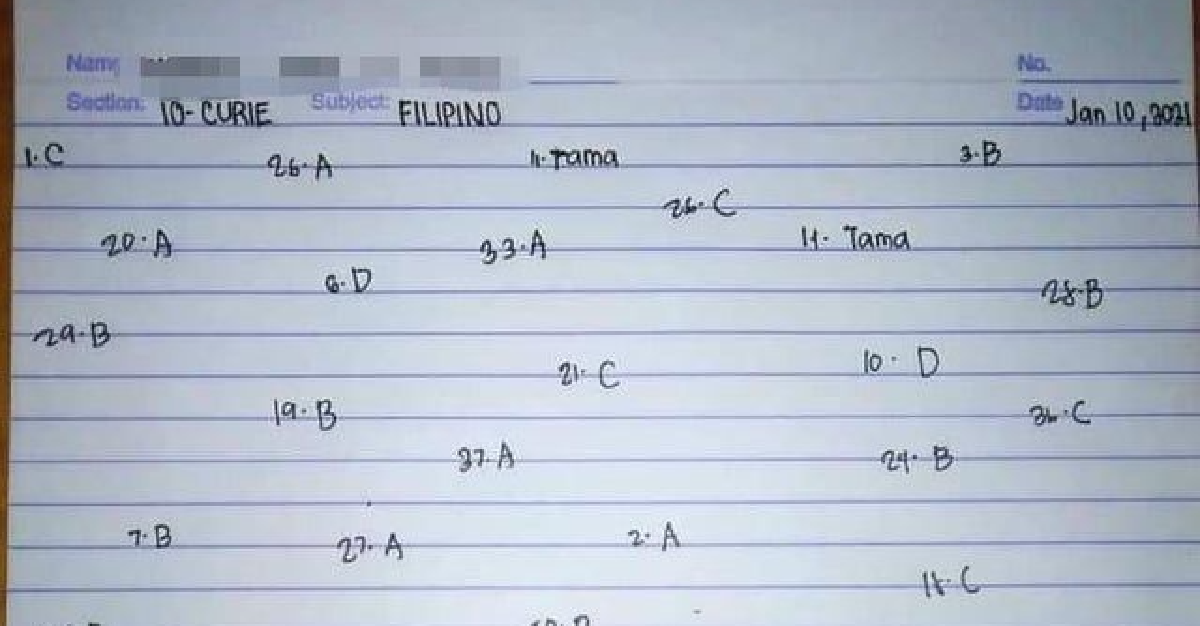 Name No.
Section: 10- CURIE Subject: FILIPINO Date Jan 10, 2021
1. C 26. A 11. Tama 3. B
26. C
20. A 33. A 11. Tama
6. D 28. B
29. B
21. C 10. D
19. B 36. C
37. A 24. B
7. B 27. A 2. A
18. C